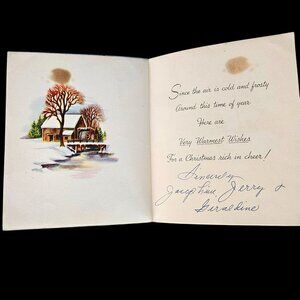 Since the air is cold and frosty
Around this time of year
Here are
Very Warmest Wishes
For a Christmas rich in cheer!
Sincerely
Josephine Jerry &
Geraldine